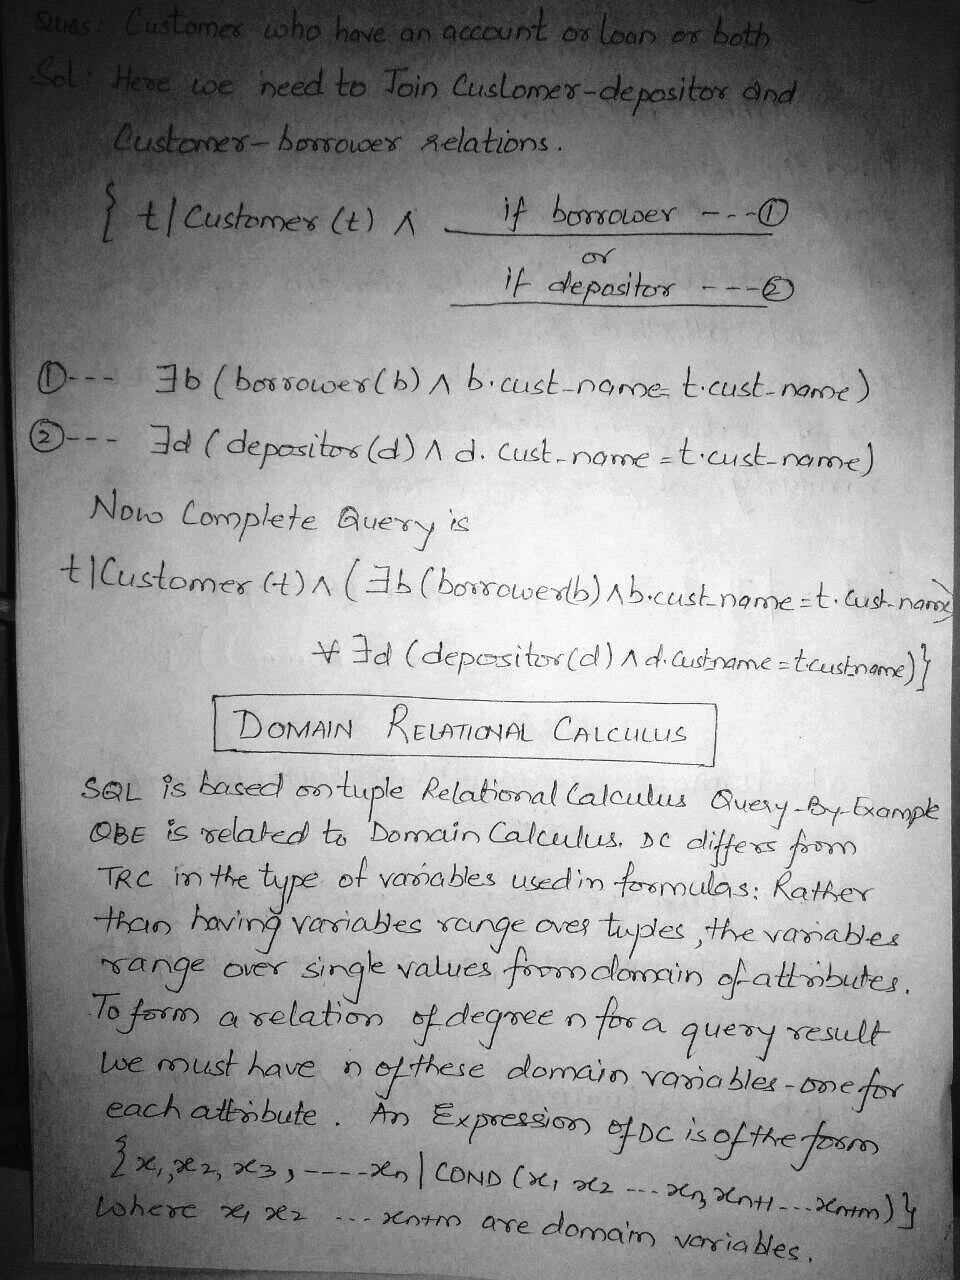 Ques: Customer who have an account or loan or both
Sol: Here we need to Join Customer-depositor and
Customer-borrower relations.
{ t | Customer (t) ∧ if borrower ---①
or
if depositor ---②
①--- ∃b (borrower(b) ∧ b.cust-name= t.cust-name)
②--- ∃d (depositor(d) ∧ d.cust-name = t.cust-name)
Now Complete Query is
t | Customer (t) ∧ (∃b (borrower(b) ∧ b.cust-name = t.cust-name)
∀ ∃d (depositor(d) ∧ d.custname = t.custname)}
DOMAIN RELATIONAL CALCULUS
SQL is based on tuple Relational Calculus Query-By-Example
QBE is related to Domain Calculus. DC differs from
TRC in the type of variables used in formulas: Rather
than having variables range over tuples, the variables
range over single values from domain of attributes.
To form a relation of degree n for a query result
we must have n of these domain variables - one for
each attribute. An Expression of DC is of the form
{x1, x2, x3, ----xn | COND (x1 x2 ---xn, xn+1 ---xn+m)}
where x1 x2 ---xn+m are domain variables.